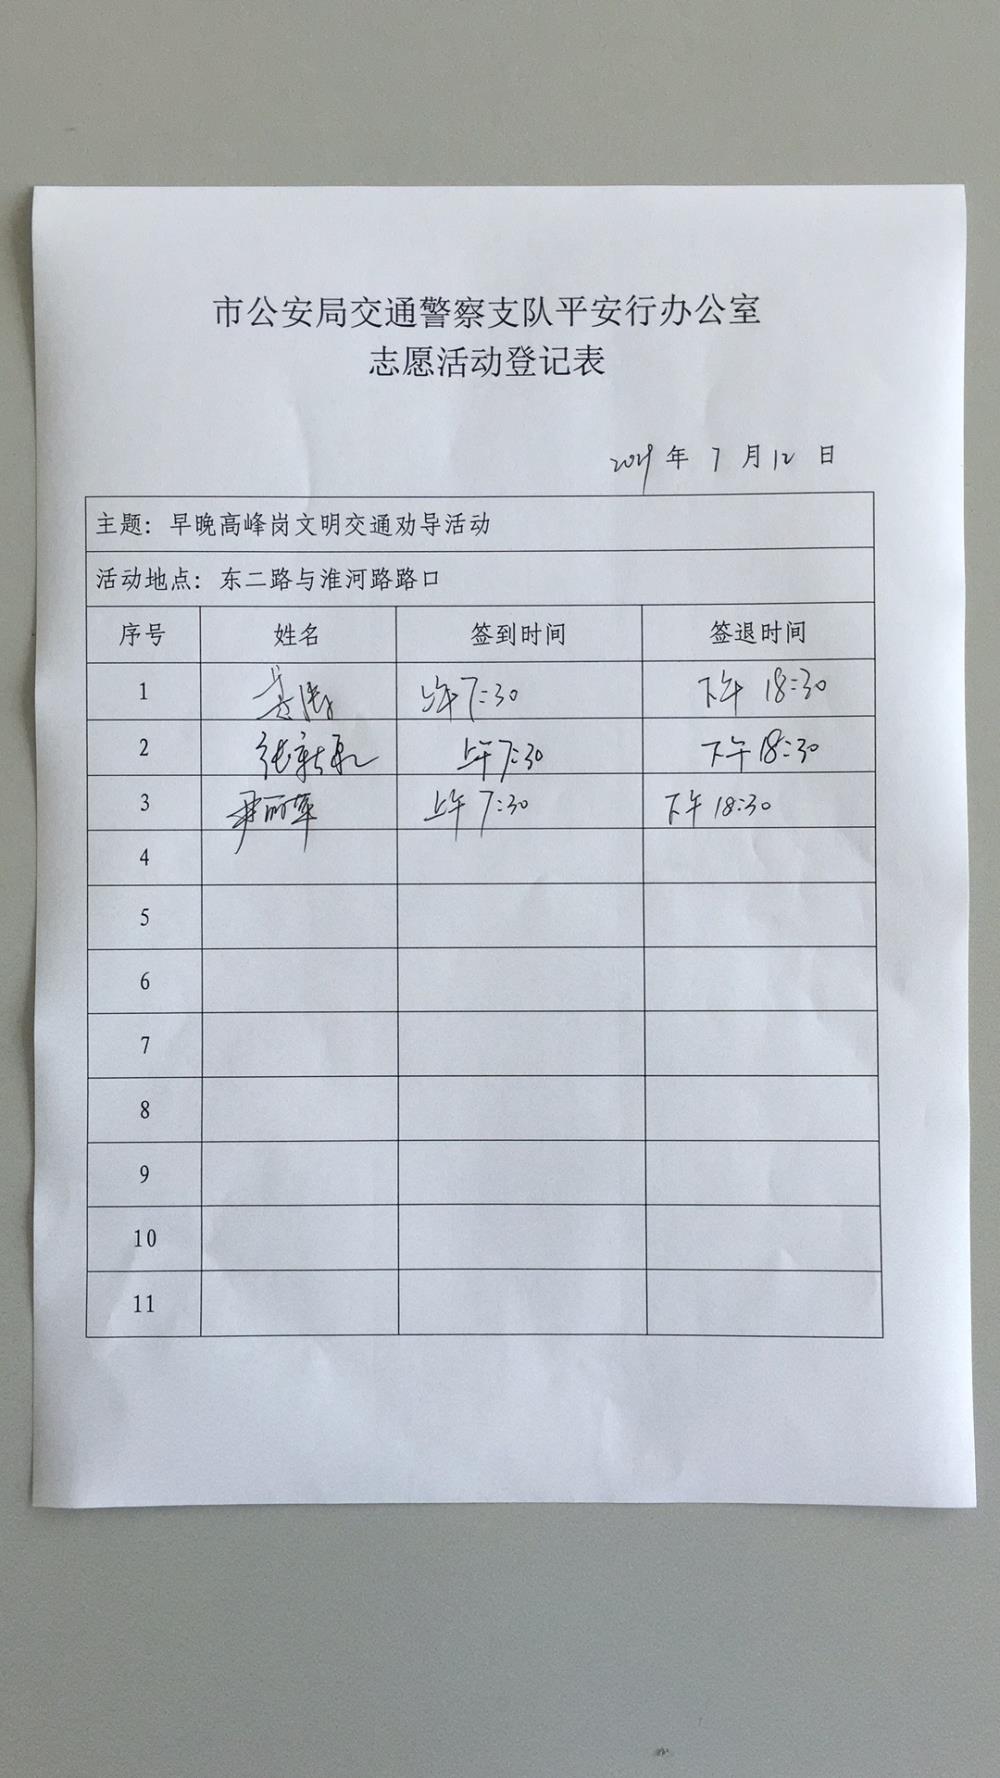 市公安局交通警察支队平安行办公室
志愿活动登记表
年 7 月 12 日
主题：早晚高峰岗文明交通劝导活动
活动地点：东二路与淮河路路口
序号 姓名 签到时间 签退时间
1 上午7:30 下午 18:30
2 张新 上午7:30 下午18:30
3 尹丽萍 上午 7:30 下午 18:30
4
5
6
7
8
9
10
11